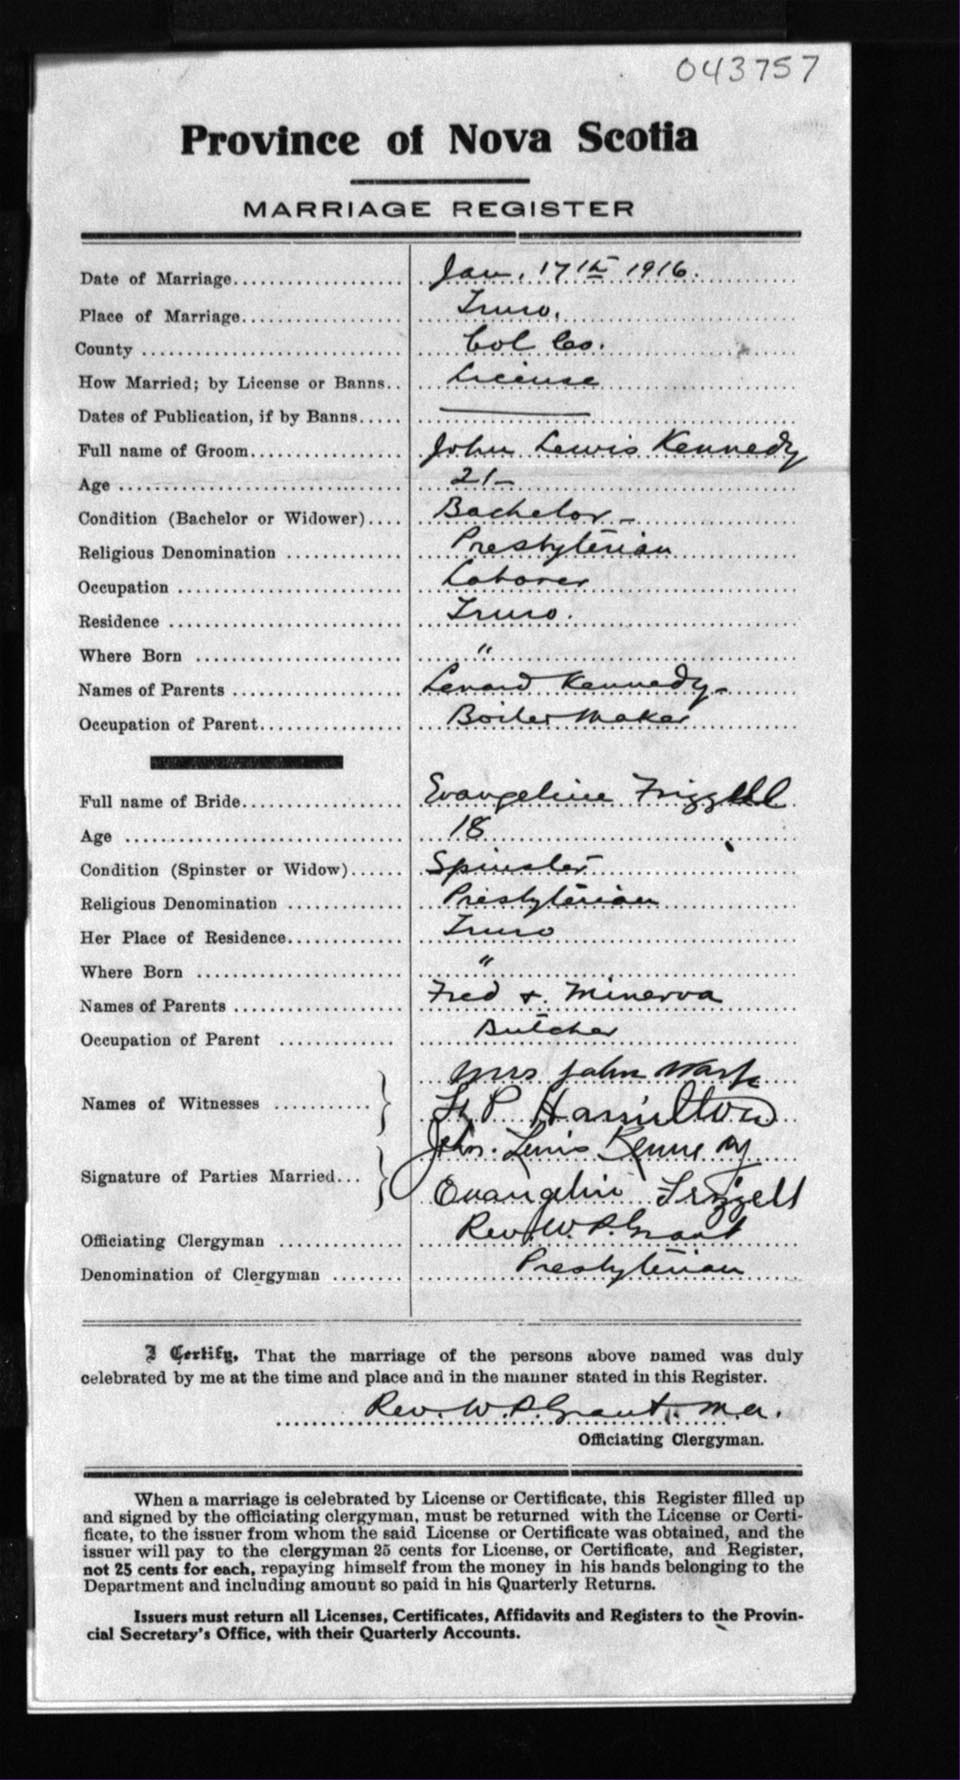 043757
Province of Nova Scotia
MARRIAGE REGISTER
Date of Marriage Jan. 17th 1916.
Place of Marriage Truro.
County Col Co.
How Married; by License or Banns License
Dates of Publication, if by Banns
Full name of Groom John Lewis Kennedy
Age 21-
Condition (Bachelor or Widower) Bachelor -
Religious Denomination Presbyterian
Occupation Laborer
Residence Truro.
Where Born "
Names of Parents Lenard Kennedy-
Occupation of Parent Boiler Maker
Full name of Bride Evangeline Frizzell
Age 18
Condition (Spinster or Widow) Spinster
Religious Denomination Presbyterian
Her Place of Residence Truro
Where Born "
Names of Parents Fred & Minerva
Occupation of Parent Butcher
Mrs John
Names of Witnesses
P Hamilton
John Lewis Kennedy
Signature of Parties Married
Evangeline Frizzell
Officiating Clergyman Rev. W. P. Grant
Denomination of Clergyman Presbyterian
I Certify, That the marriage of the persons above named was duly
celebrated by me at the time and place and in the manner stated in this Register.
Rev. W. P. Grant. M.A.
Officiating Clergyman.
When a marriage is celebrated by License or Certificate, this Register filled up
and signed by the officiating clergyman, must be returned with the License or Certi-
ficate, to the issuer from whom the said License or Certificate was obtained, and the
issuer will pay to the clergyman 25 cents for License, or Certificate, and Register,
not 25 cents for each, repaying himself from the money in his hands belonging to the
Department and including amount so paid in his Quarterly Returns.
Issuers must return all Licenses, Certificates, Affidavits and Registers to the Provin-
cial Secretary's Office, with their Quarterly Accounts.